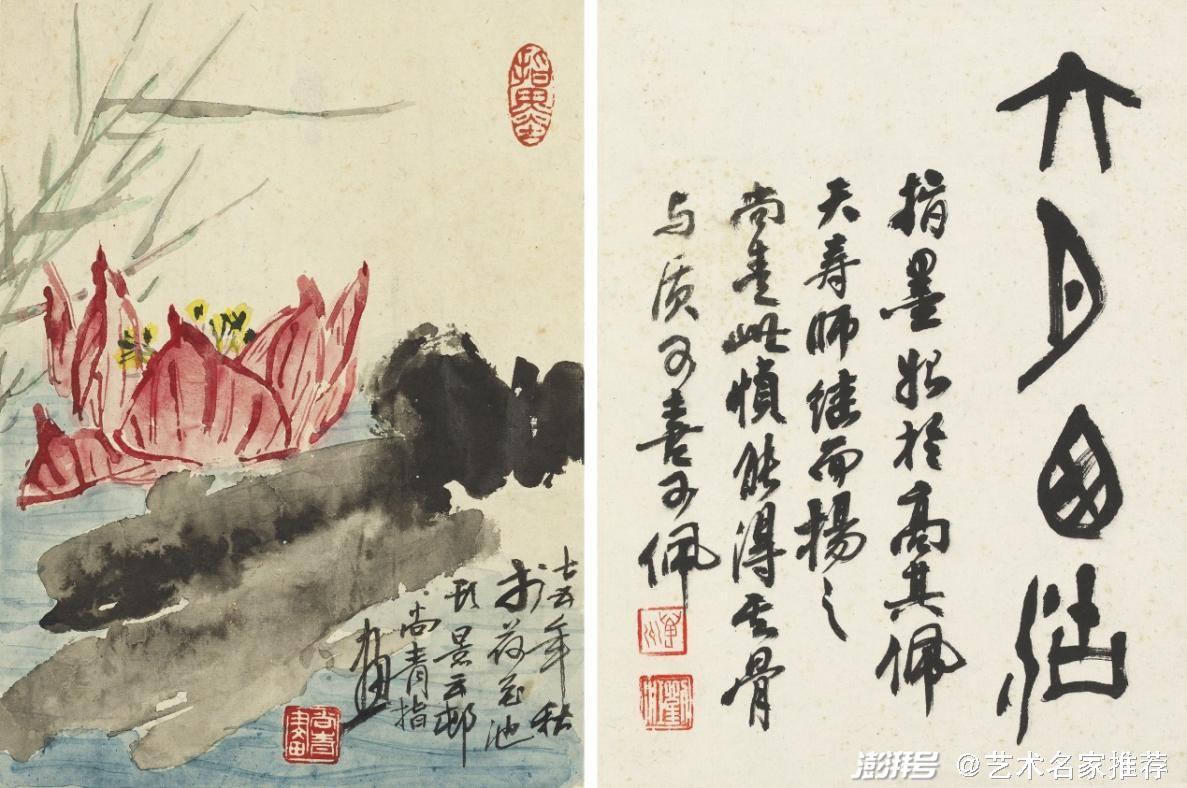 六月
指墨始於高其佩
天寿师继而揚之
尚青此幀能得其骨
与质可喜可佩
七五年秋
於荷花池
头景云邨
尚青指
画
澎湃号 @艺术名家推荐